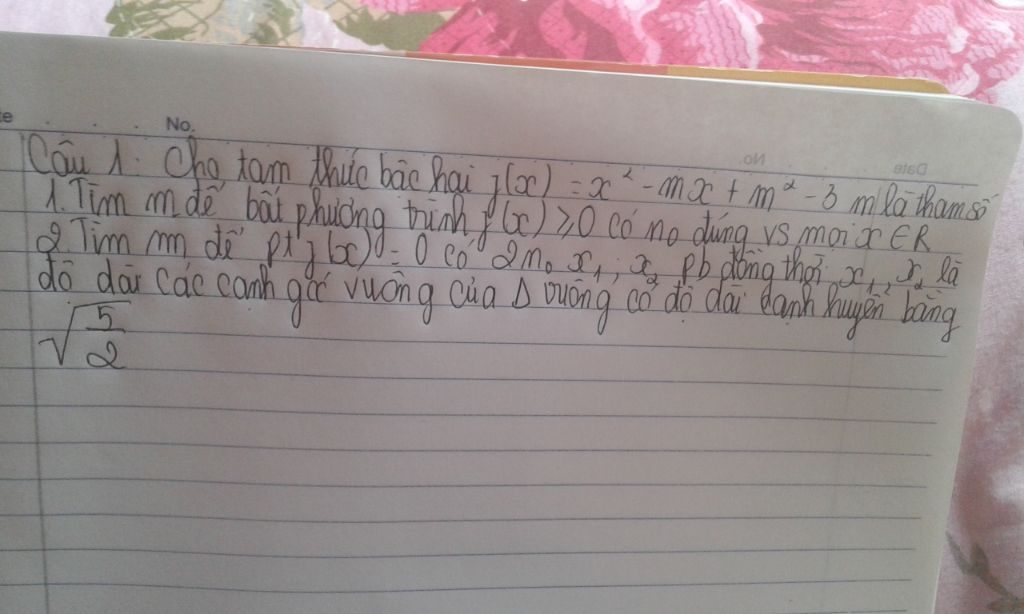 No.
Câu 1. Cho tam thức bậc hai f(x) = x² - mx + m² - 3 m là tham số
1. Tìm m để bất phương trình f(x) ≥ 0 có no đúng vs mọi x ∈ R
2. Tìm m để pt f(x) = 0 có 2 no x₁; x₂ pb đồng thời x₁, x₂ là
độ dài các cạnh góc vuông của Δ vuông có độ dài cạnh huyền bằng
√(5/2)